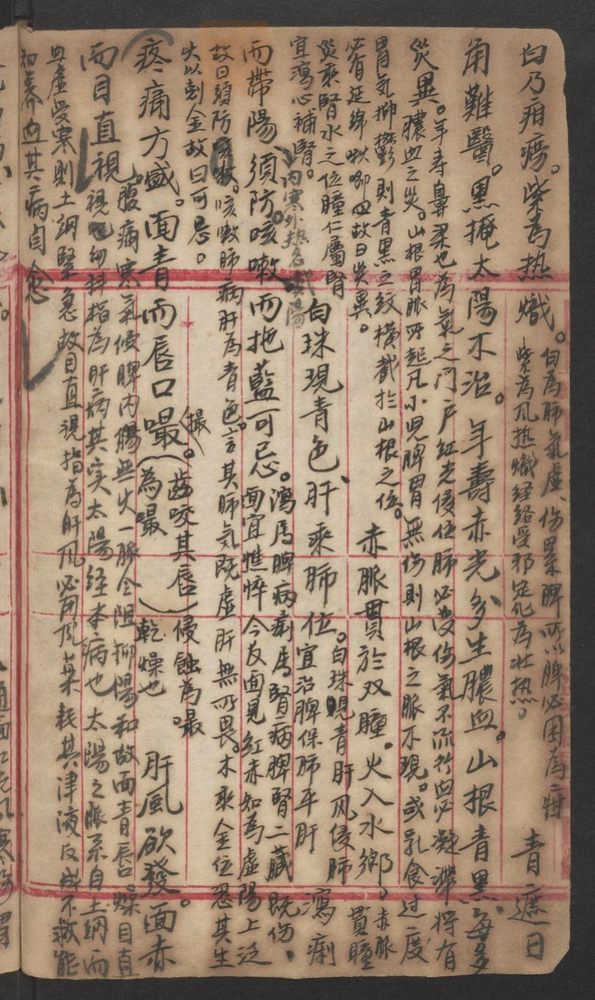 白乃疳癆。柴為热熾。白為肺氣虛、傷累脾所以脾必困為疳 青遮日
柴為凡热熾经絡受邪定化為壯热。
角難醫。黑掩太陽不治。年壽赤光多生膿血。山根青黑。每多
災異。年寿鼻梁也為氣之门户红光侵位肺必受伤氣不流行血必凝滞将有
膿血之災。山根胃脈所起凡小児脾胃無伤則山根之脈不現。或乳食过度
胃氣抑鬱則青黑之纹横截於山根之位。赤脈貫於双瞳。火入水鄉。赤脈貫瞳
必有延绵啾唧故曰災異。
災乘腎水之位瞳仁屬腎
宜瀉心補腎。白珠現青色、肝乘肺位。白珠現青肝凡侵肺宜治脾保肺平肝 瀉痢
而帶陽、須防咳嗽而拖藍可忌。瀉屬脾病痢属腎病脾腎二藏既伤。
内寒外热名戴陽
面宜憔悴今反面見红赤知為虛陽上泛
故曰須防咳嗽。咳嗽肺病肝為青色。言其肺气既虛肝無所畏。木乘金位忍其生
火以刻金故曰可忌。
疼痛方盛。面青而唇口嘬(撮。齿咬其唇)侵蝕為嘬。
(為嘬)乾燥也 肝風欲發面赤
而目直視。腹痛寒氣侵脾内腸無火一脈令阻抑陽和故面青唇燥目直
視 幼科指為肝病其实太陽经本病也太陽之脈系自上網而
無虛受寒則上網緊急故目直視指為肝凡必用凡药耗其津液反成不救能
和养血其病自愈